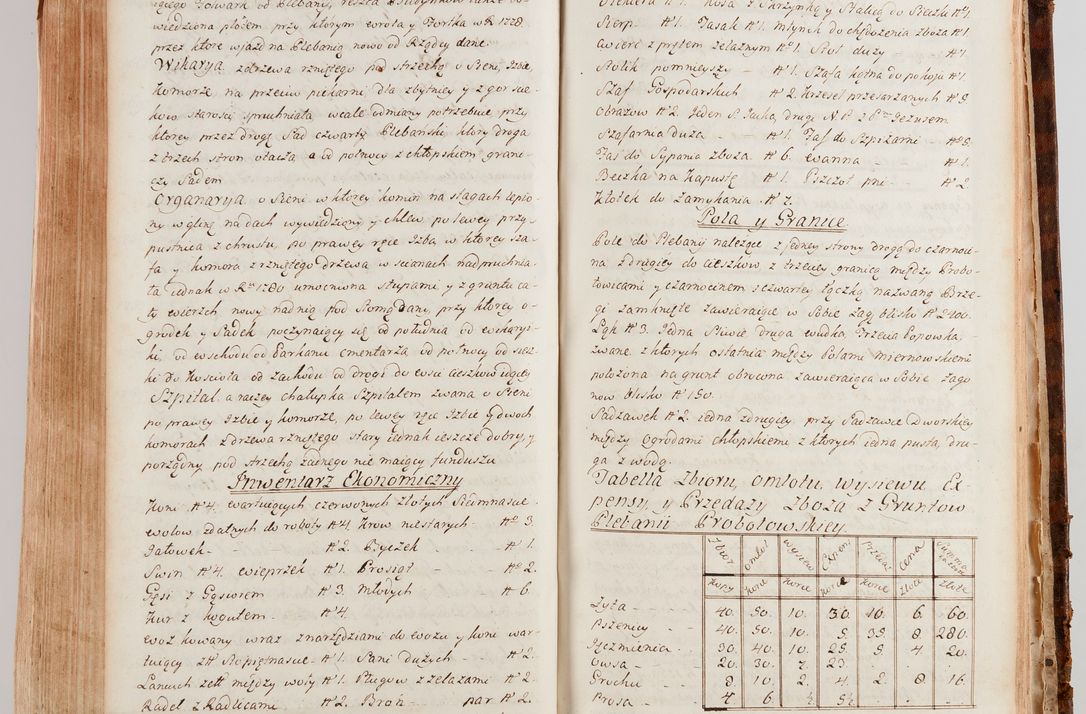 wiedziona płozem przy którym wrota y Fortka w R. 1778.
przez które wjazd na Plebanią nowo od Rządcy dane.
Wikarya z drzewa rzniętego pod strzechą o Sieni, Izbie,
komorze na przeciw piekarni dla zbytniey y z gor sue-
kow starości spruchniała wcale odmiany potrzebuie przy
ktorey przez drogę Sad czwarty Plebański, ktory droga
z trzech stron otacza a od połnocy z chłopskiem grani-
czy Sadem
Organarya o Sieni w ktorey komin na słagach lepio-
ny w glinę nadach wywiedziony y chlew po lewey przy-
pustnica z chrustu, po prawey ręce Izba w ktorey sza-
fa y komora z rzniętego drzewa w scianach nadpruchnia-
ła iednak w Rku 1780 umocniona słupami y z gruntu ca-
ły wierzch nowy nad nią pod słomę dany, przy ktorey o-
grodek y Sadek poczynaiący się od południa od wikarys-
ki od wschodu od Parkanu cmentarza od połnocy od siesz-
ki do kościoła od zachodu od drogi do wsi Cieszkow idącey
Szpital, a raczey chałupka Szpitalem zwana o Sieni
po prawey Izbie y komorze, po lewey ręce Izbie y dwoch
komorach z drzewa rzniętego stary iednak ieszcze dobry, y
porządny pod strzechą żadnego nie maiący funduszu
Inwentarz Ekonomiczny
Koni N° 4. wartuiących czerwonych złotych Siedmnascie
wołow zdatnych do roboty N° 4. Krow niestarych - N° 3.
Jałowek - N° 2. Byczek - N° 1.
Swin N° 4. wieprzek N° 1. Prosiąt - N° 2.
Gęsi z Gąsiorem N° 3. młodych N° 6.
Kur z kogutem N° 4.
woz kowany wraz z narzędziami do wozu y koni war-
tuiący zł Piętnascie N° 1. Sani dużych - N° 2.
Lancuch zeł między woły N° 1. Pługow z zelazami N° 2
Radeł z Radlicami N° 2. Bron par N° 2.
Sierp. N° 1. Tasak N° 1. młynek do chędożenia zboża N° 1.
cwierć z prętem zelaznym N° 1. Stoł duży - N° 1
Stolik pomnieyszy - N° 1. Szafa kątna do pokoju N° 1
Szaf Gospodarskich N° 2. Krzeseł przestarzanych N° 9
obrazow N° 2. Jeden S. Jacka, drugi N. P. z Pem Jezusem
Szafarnia duża - N° 1. Fas do Szpiżarni - N° 8.
Fas do Sypania zboża N° 6. wanna - N° 1.
Beczka na Kapustę N° 1. Pszczoł pni - N° 2
Kłotek do zamykania N° 7.
Pola y Granice
Pole do Plebanii nalezące z jedney strony drogą do czarnoci-
na z drugiey do cieszkow z trzeciey granicą między Probo-
łowicami y czarnocinem z czwartey łączką nazwaną Brze-
gi zamknięte zawieraiące w Sobie zag. blisko N° 2400.
Łąk N° 3. Jedna Pliwie druga wudka, Trzecia Popowka
zwane z ktorych ostatnia między Polami miernowskiemi
położona na grunt obrocona zawieraiąca w Sobie zago-
now blisko N° 150.
Sadzawek N° 2. iedna z drugiey przy Sadzawce Dworskiey
między ogrodami chłopskiemi z ktorych iedna pusta, dru-
ga z wodą.
Tabella Zbioru, omłotu, wysiewu, Ex-
pensy, y Przedaży Zboża z Gruntow
Plebanii Probołowskiey
Zbior omłot wysiew Expens Przedaż cena summa
kopy korce korce korce korce złote złote
Zyta 40. 50. 10. 30. 10. 6. 60.
Pszenicy 40. 50. 10. 5. 35. 8. 280.
Jęczmienia 30. 40. 10. 25. 5. 4. 20.
Owsa 20. 30. 7. 23.
Grochu 8. 10. 2. 4. 2. 8. 16.
Prosa 4. 6. ½ 5½